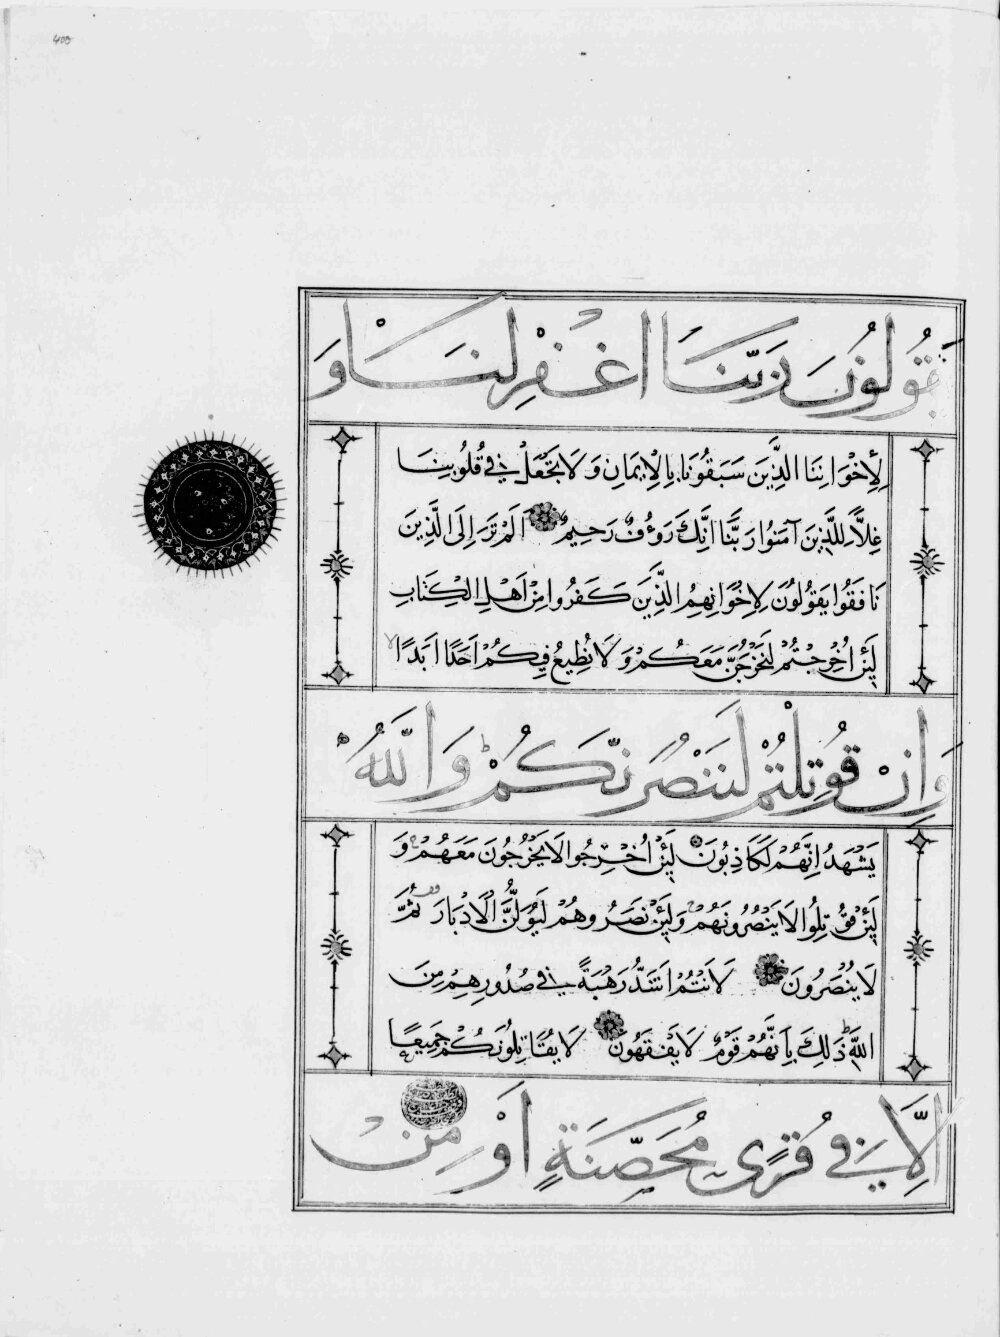 400
يَقُولُونَ رَبَّنَا اغْفِرْ لَنَا وَ
لِإِخْوَانِنَا الَّذِينَ سَبَقُونَا بِالْإِيمَانِ وَلَا تَجْعَلْ فِي قُلُوبِنَا
غِلًّا لِلَّذِينَ آمَنُوا رَبَّنَا إِنَّكَ رَؤُفٌ رَحِيمٌ اَلَمْ تَرَ إِلَى الَّذِينَ
نَافَقُوا يَقُولُونَ لِإِخْوَانِهِمُ الَّذِينَ كَفَرُوا مِنْ اَهْلِ الْكِتَابِ
لَئِنْ اُخْرِجْتُمْ لَنَخْرُجَنَّ مَعَكُمْ وَلَا نُطِيعُ فِيكُمْ اَحَدًا اَبَدًا
وَاِنْ قُوتِلْتُمْ لَنَنْصُرَنَّكُمْ وَاللَّهُ
يَشْهَدُ اِنَّهُمْ لَكَاذِبُونَ لَئِنْ اُخْرِجُوا لَا يَخْرُجُونَ مَعَهُمْ وَ
لَئِنْ قُوتِلُوا لَا يَنْصُرُونَهُمْ وَلَئِنْ نَصَرُوهُمْ لَيُوَلُّنَّ الْاَدْبَارَ ثُمَّ
لَا يُنْصَرُونَ لَاَنْتُمْ اَشَدُّ رَهْبَةً فِي صُدُورِهِمْ مِنَ
اللَّهِ ذَلِكَ بِاَنَّهُمْ قَوْمٌ لَا يَفْقَهُونَ لَا يُقَاتِلُونَكُمْ جَمِيعًا
اِلَّا فِي قُرًى مُحَصَّنَةٍ اَوْ مِنْ